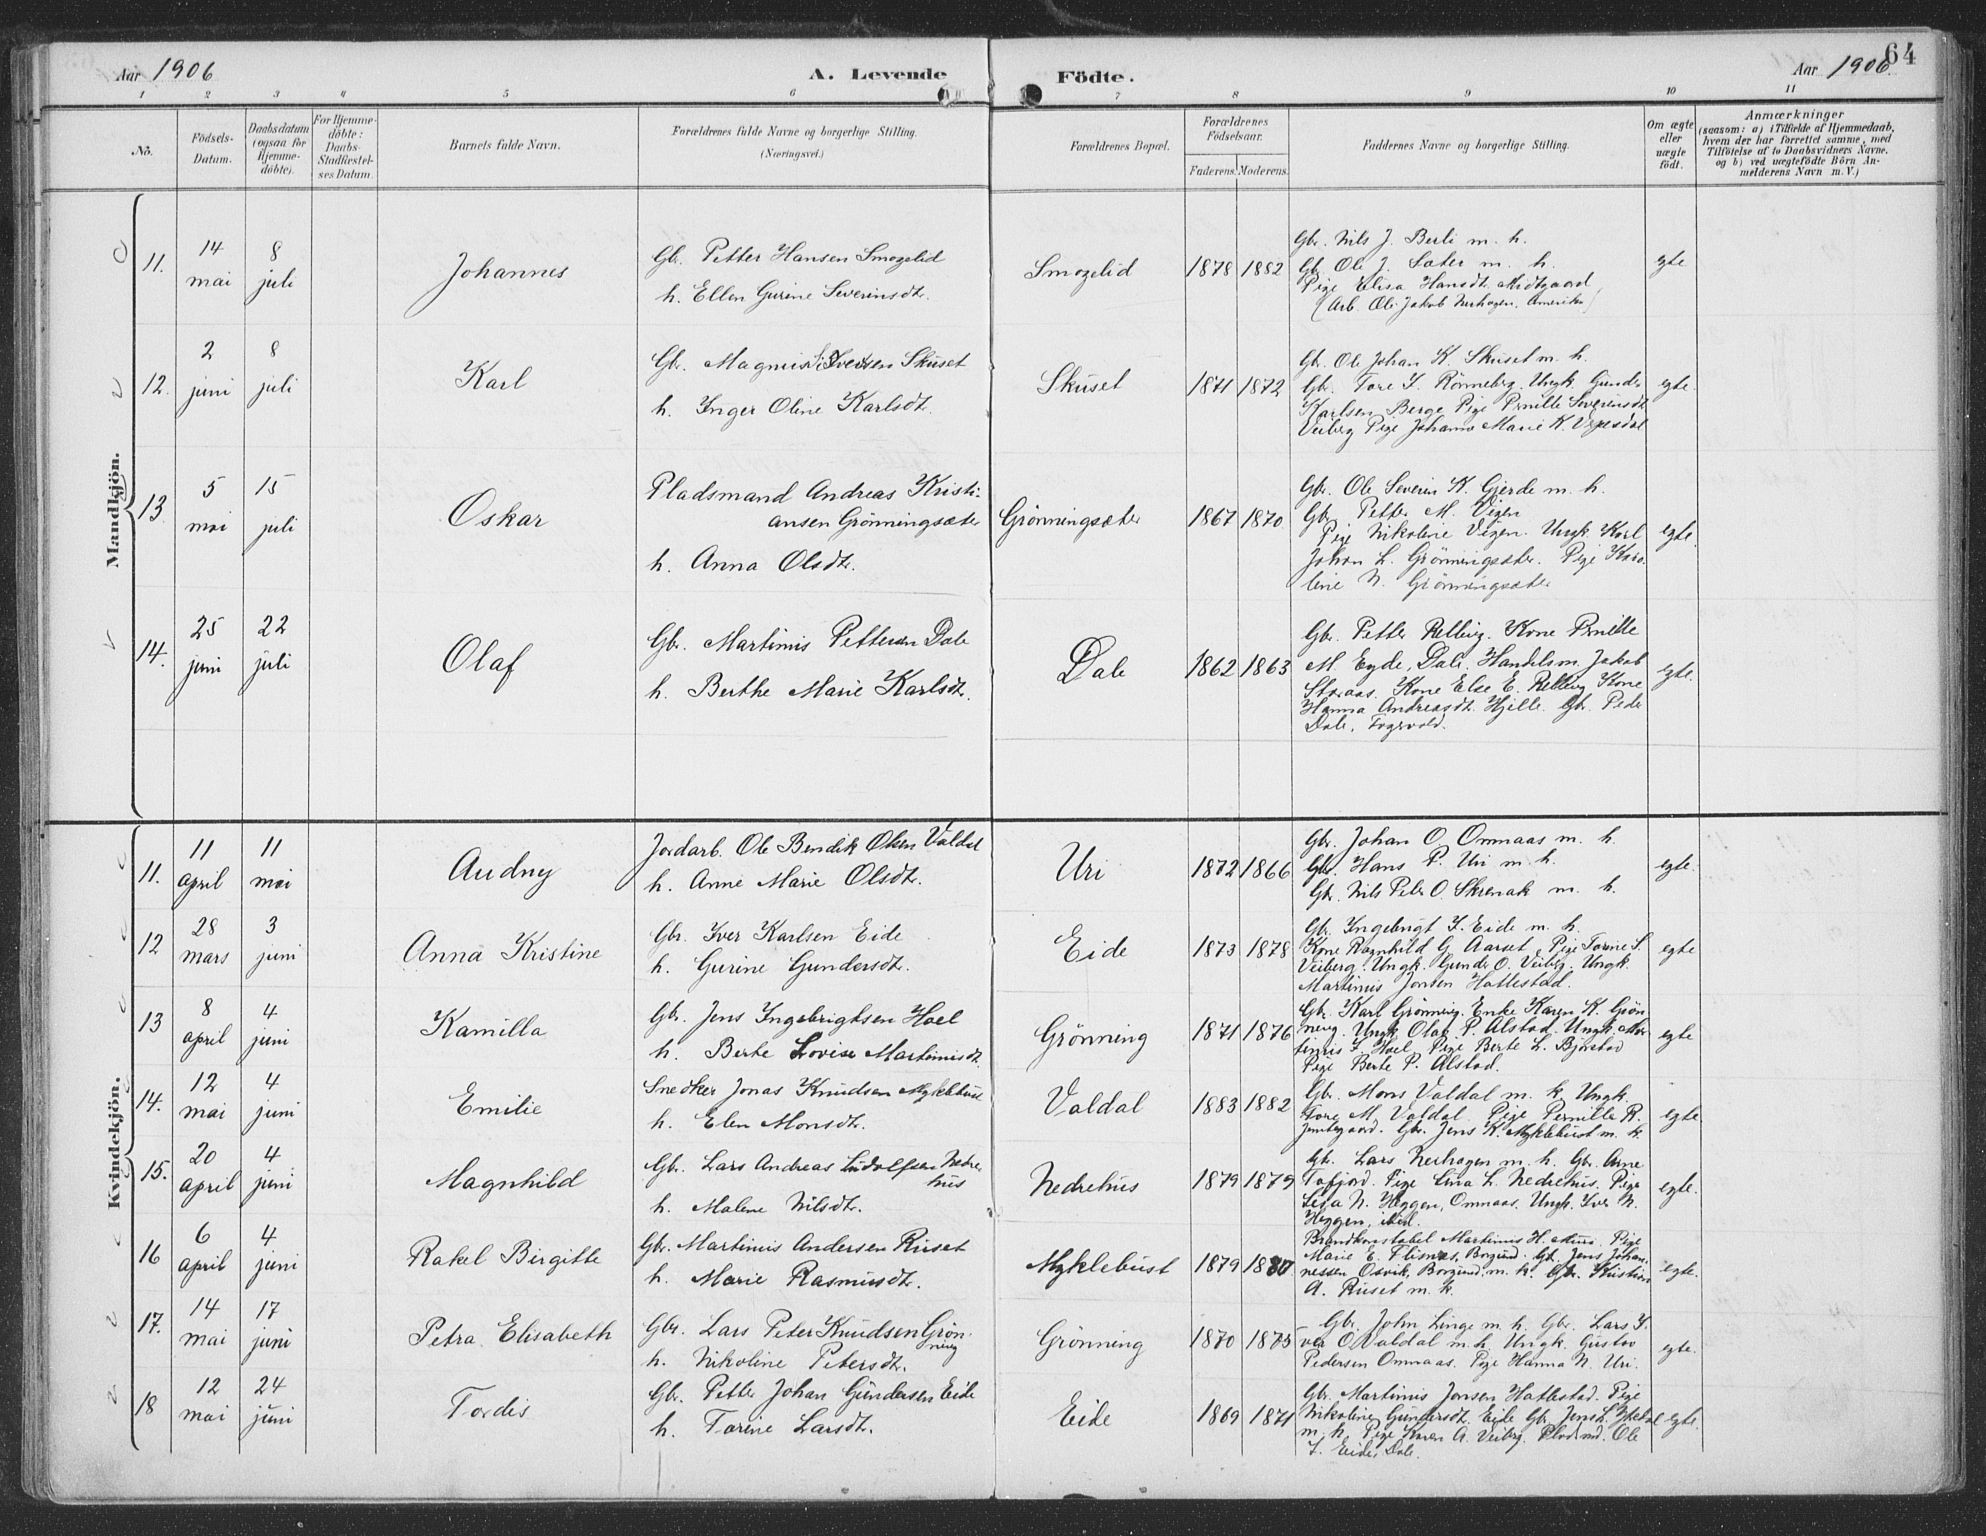 Aar 1906
A. Levende
Födte.
Aar 1906
64
1 2 3 4 5 6 7 8 9 10 11
No.
Födsels-Datum.
Daabsdatum (ogsaa for Hjemme-döbte).
For Hjemme-döbte: Daabs-Stadfæstel-ses Datum.
Barnets fulde Navn.
Forældrenes fulde Navne og borgerlige Stilling.
(Næringsvei.)
Forældrenes Bopæl.
Forældrenes Födselsaar.
Faderens. Moderens.
Faddernes Navne og borgerlige Stilling.
Om ægte eller uægte födt.
Anmærkninger
(saasom: a) i Tilfælde af Hjemmedaab,
hvem der har forrettet samme, med
Tilföielse af to Daabsvidners Navne.
og b) ved uægtefödte Börn An-
melderens Navn m. V.)
Mandkjön.
11. 14 mai 8 juli Johannes
Gbr. Petter Hansen Smogelid
h. Ellen Gurine Severinsdtr.
Smogelid 1878 1882
Gbr. Nils J. Berli m. h.
Gbr. Ole J. Sæter m. h.
Pige Elisa Hansdt. Midtgaard
(Arb. Ole Jakob Nerhagen, Amerika)
egte
12. 2 juni 8 juli Karl
Gbr. Magnus Sivertsen Skuset
h. Inger Oline Karlsdt.
Skuset 1871 1872
Gbr. Ole Johan K. Skuset m. h.
Gbr. Tore I. Rönneberg. Ungk. Gunder
Karlsen Berge Pige Pernille Severinsdt.
Veiberg Pige Johanne Marie K.
egte.
13. 5 mai 15 juli Oskar
Pladsmand Andreas Kristi-
ansen Grönningsæter
h. Anna Olsdtr.
Grönningsæter 1867 1870
Gbr. Ole Severin K. Gjerde m. h.
Gbr. Petter M. Vigen
Pige Nikoline Vigen. Ungk. Karl
Johan L. Grönningsæter. Pige Karo-
line N. Grönningsæter
egte.
14. 25 juni 22 juli Olaf
Gbr. Martinus Pettersen Dale
h. Berthe Marie Karlsdt.
Dale 1862 1863
Gbr. Petter Relling. Kone Pernille
M. Eyde, Dale. Handelsm. Jakob
Storaas. Kone Else E. Relling Kone
Hanna Andreasdt. Hjelle. Gbr. Peder
Dale, Fogevold.
egte.
Kvindekjön.
11. 11 april 11 mai Audny
Jordarb. Ole Bendik Olsen Valdal
h. Anne Marie Olsdtr.
Uri 1872 1866
Gbr. Johan O. Ommaas m. h.
Gbr. Hans P. Uri m. h.
Gbr. Nils Peter O. Skrenak m. h.
egte.
12 28 mars 3 juni Anna Kristine
Gbr. Iver Karlsen Eide
h. Gurine Gundersdt.
Eide 1873 1878
Gbr. Ingebrigt I. Eide m. h.
Kone Ragnhild G. Aarset, Pige Torine S.
Veiberg. Ungk. Gunder O. Veiberg. Ungk.
Martinus Jonsen Hattestad.
egte
13 8 april 4 juni Kamilla
Gbr. Jens Ingebrigtsen Hoel
h. Berte Lovise Martinusdt.
Grönning 1871 1876
Gbr. Karl Grönning. Enke Karen K. Grön-
ning. Ungk. Olav P. Alstad. Ungk. Mar-
tinus I. Hoel, Pige Berte L. Bjorstad
Pige Berte P. Alstad.
egte
14. 12 mai 4 juni Emilie
Snedker Jonas Knudsen Myklebust
h. Elen Monsdtr.
Valdal 1883 1882
Gbr. Mons Valdal m. h. Ungk.
Tore M. Valdal. Pige Pernille R.
Gbr. Jens K. Myklebust m. h.
egte
15. 20 april 4 juni Magnhild
Gbr. Lars Andreas Ludolfsen Nedre-
hus
h. Malene Nilsdtr.
Nedrehus 1879 1879
Gbr. Lars Nerhagen m. h. Gbr. Arne
Tafjord. Pige Lina L. Nedrehus. Pige
Lisa N. Heggen, Ommaas. Ungk. Iver N.
Heggen, ibid.
egte.
16 6 april 4 juni Rakel Birgitte
Gbr. Martinus Andersen Ruset
h. Marie Rasmusdt.
Myklebust 1879 1880
Brandkonstabel Martinus H. Pige
Marie E. Flisnes, Borgund. Gbr. Jens Johan-
nessen Osvik, Borgund. m. h. Gbr. Kristian
A. Ruset m. h.
egte.
17. 14 mai 17 juni Petra Elisabeth
Gbr. Lars Peter Knudsen Grön-
ning
h. Nikoline Petersdtr.
Grönning 1870 1875
Gbr. John Linge m. h. Gbr. Lars I-
ver O. Valdal m. h. Ungk. Gustav
Pedersen Ommaas. Pige Hanna N. Uri.
egte.
18 12 mai 24 juni Tordis
Gbr. Petter Johan Gundersen Eide
h. Torine Larsdtr.
Eide 1869 1871
Gbr. Martinus Jonsen Hattestad. Pige
Nikoline Gundersdt. Eide Gbr. Jens L.
m. h. Pige Karen A. Veiberg. Pladsmd. Ole
I. Eide, Dale.
egte.